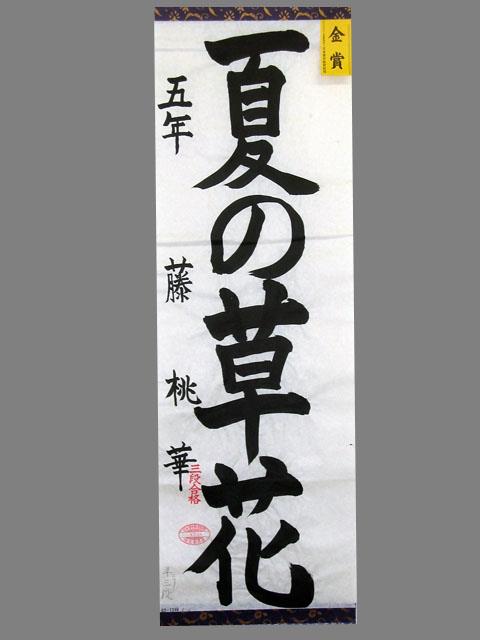 金賞
夏の草花
五年 藤 桃 華
三段合格